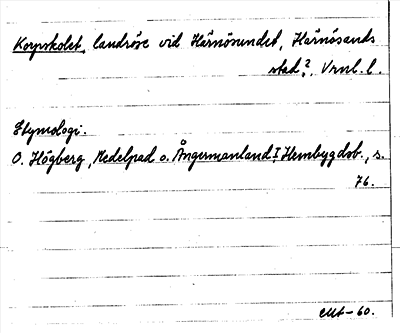 Korpskolet, landröse vid Härnösundet, Härnösands
stad?, Vrnl. l.
Etymologi.
O. Högberg, Medelpad o. Ångermanland I, Hembygdsb., s.
76.
-60.